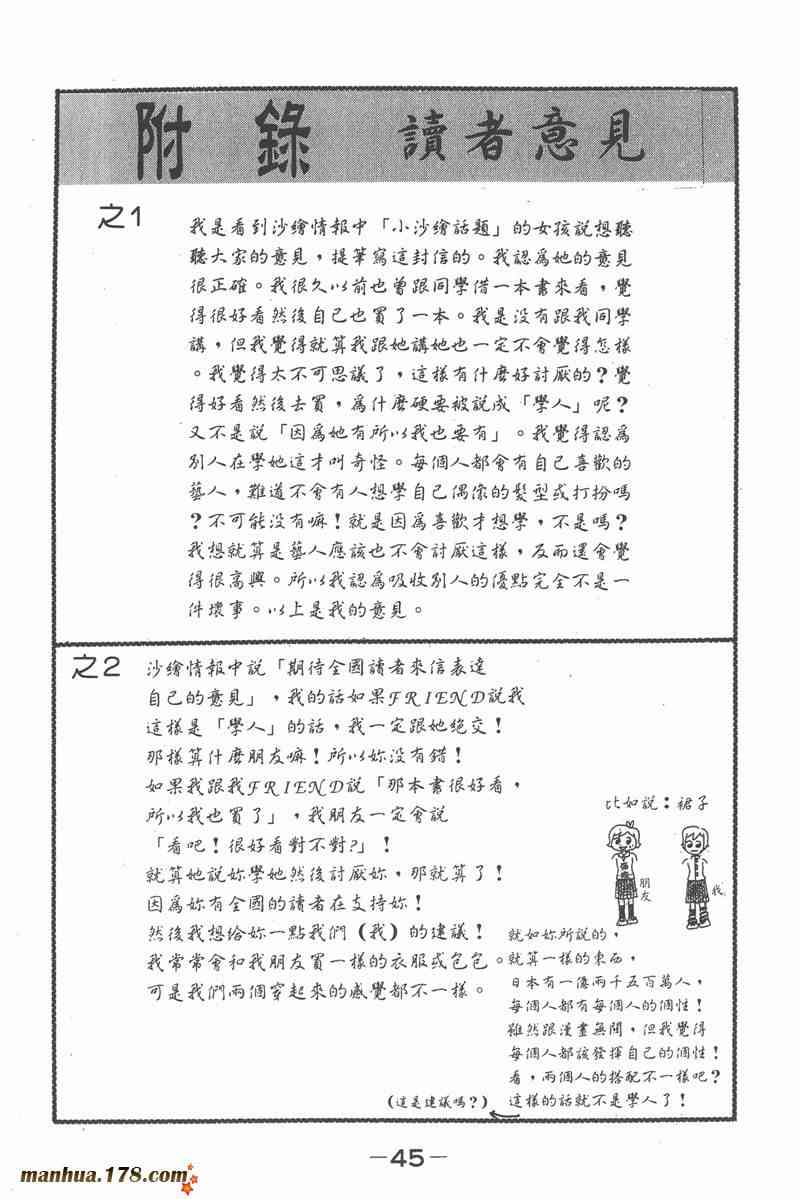 附錄 讀者意見
之1
我是看到沙繪情報中「小沙繪話題」的女孩說想聽
聽大家的意見，提筆寫這封信的。我認為她的意見
很正確。我很久以前也曾跟同學借一本書來看，覺
得很好看然後自己也買了一本。我是沒有跟我同學
講，但我覺得就算我跟她講她也一定不會覺得怎樣
。我覺得太不可思議了，這樣有什麼好討厭的？覺
得好看然後去買，為什麼硬要被說成「學人」呢？
又不是說「因為她有所以我也要有」。我覺得認為
別人在學她這才叫奇怪。每個人都會有自己喜歡的
藝人，難道不會有人想學自己偶像的髮型或打扮嗎
？不可能沒有嘛！就是因為喜歡才想學，不是嗎？
我想就算是藝人應該也不會討厭這樣，反而還會覺
得很高興。所以我認為吸收別人的優點完全不是一
件壞事。以上是我的意見。
之2
沙繪情報中說「期待全國讀者來信表達
自己的意見」，我的話如果FRIEND說我
這樣是「學人」的話，我一定跟她絕交！
那樣算什麼朋友嘛！所以妳沒有錯！
如果我跟我FRIEND說「那本書很好看，
所以我也買了」，我朋友一定會說
「看吧！很好看對不對？」！
就算她說妳學她然後討厭妳，那就算了！
因為妳有全國的讀者在支持妳！
然後我想給妳一點我們（我）的建議！
我常常會和我朋友買一樣的衣服或包包。
可是我們兩個穿起來的感覺都不一樣。
比如說：裙子
朋友
我
就如妳所說的，
就算一樣的東西，
日本有一億兩千五百萬人，
每個人都有每個人的個性！
雖然跟漫畫無關，但我覺得
每個人都該發揮自己的個性！
看，兩個人的搭配不一樣吧？
這樣的話就不是學人了！
（這是建議嗎？）
－45－
manhua.178.com